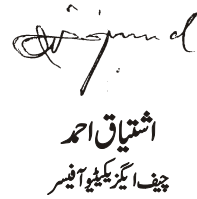 اشتیاق احمد
چیف ایگزیکٹیو آفیسر